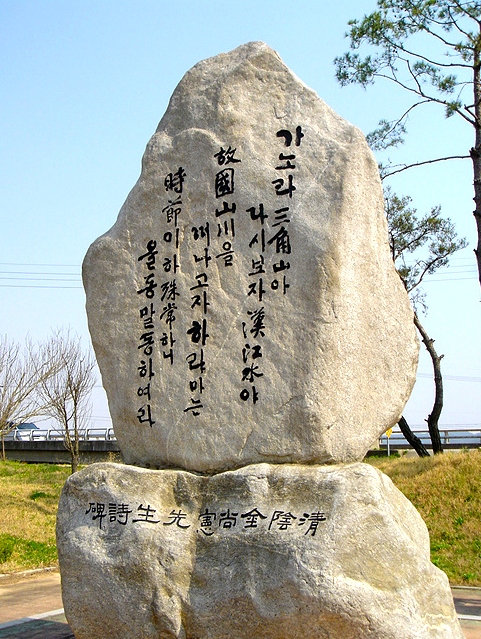 가노라 三角山아
다시보자 漢江水야
故國山川을
떠나고쟈 하랴마는
時節이 하 殊常하니
올동말동하여라
清陰金尙憲先生詩碑